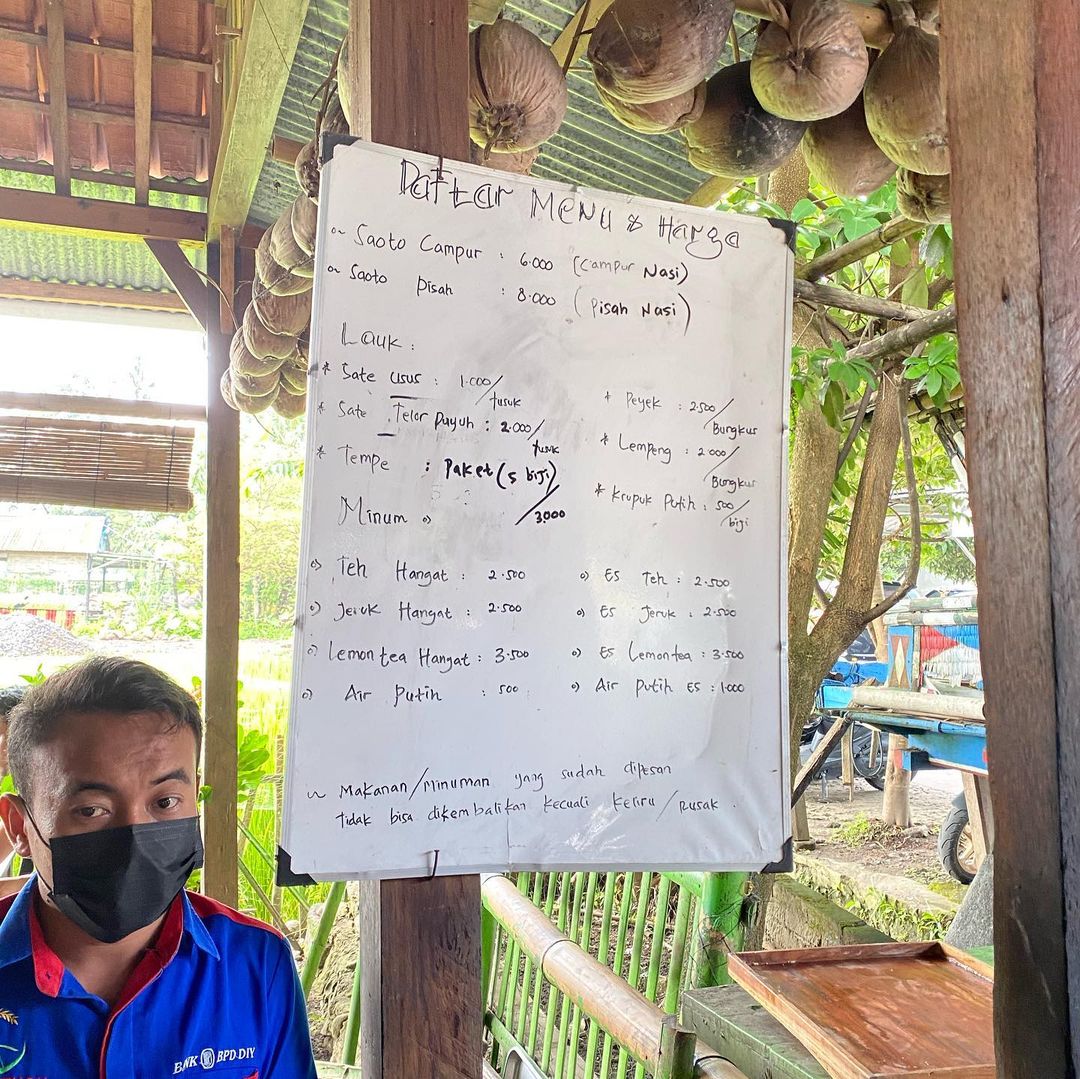 Daftar Menu & Harga
Saoto Campur : 6.000 (Campur Nasi)
Saoto Pisah : 8.000 (Pisah Nasi)
Lauk :
* Sate Usus : 1.000/tusuk
* Sate Telor puyuh : 2.000/tusuk
* Tempe : Paket (5 biji)/3.000
* Peyek : 2.500/Bungkus
* Lempeng : 2.000/Bungkus
* Krupuk Putih : 500/biji
Minum
Teh Hangat : 2.500
Jeruk Hangat : 2.500
Lemon tea Hangat : 3.500
Air Putih : 500
Es Teh : 2.500
Es Jeruk : 2.500
Es Lemontea : 3.500
Air Putih Es : 1.000
Makanan/Minuman yang sudah dipesan
tidak bisa dikembalikan kecuali keliru/rusak.
BANK BPD DIY